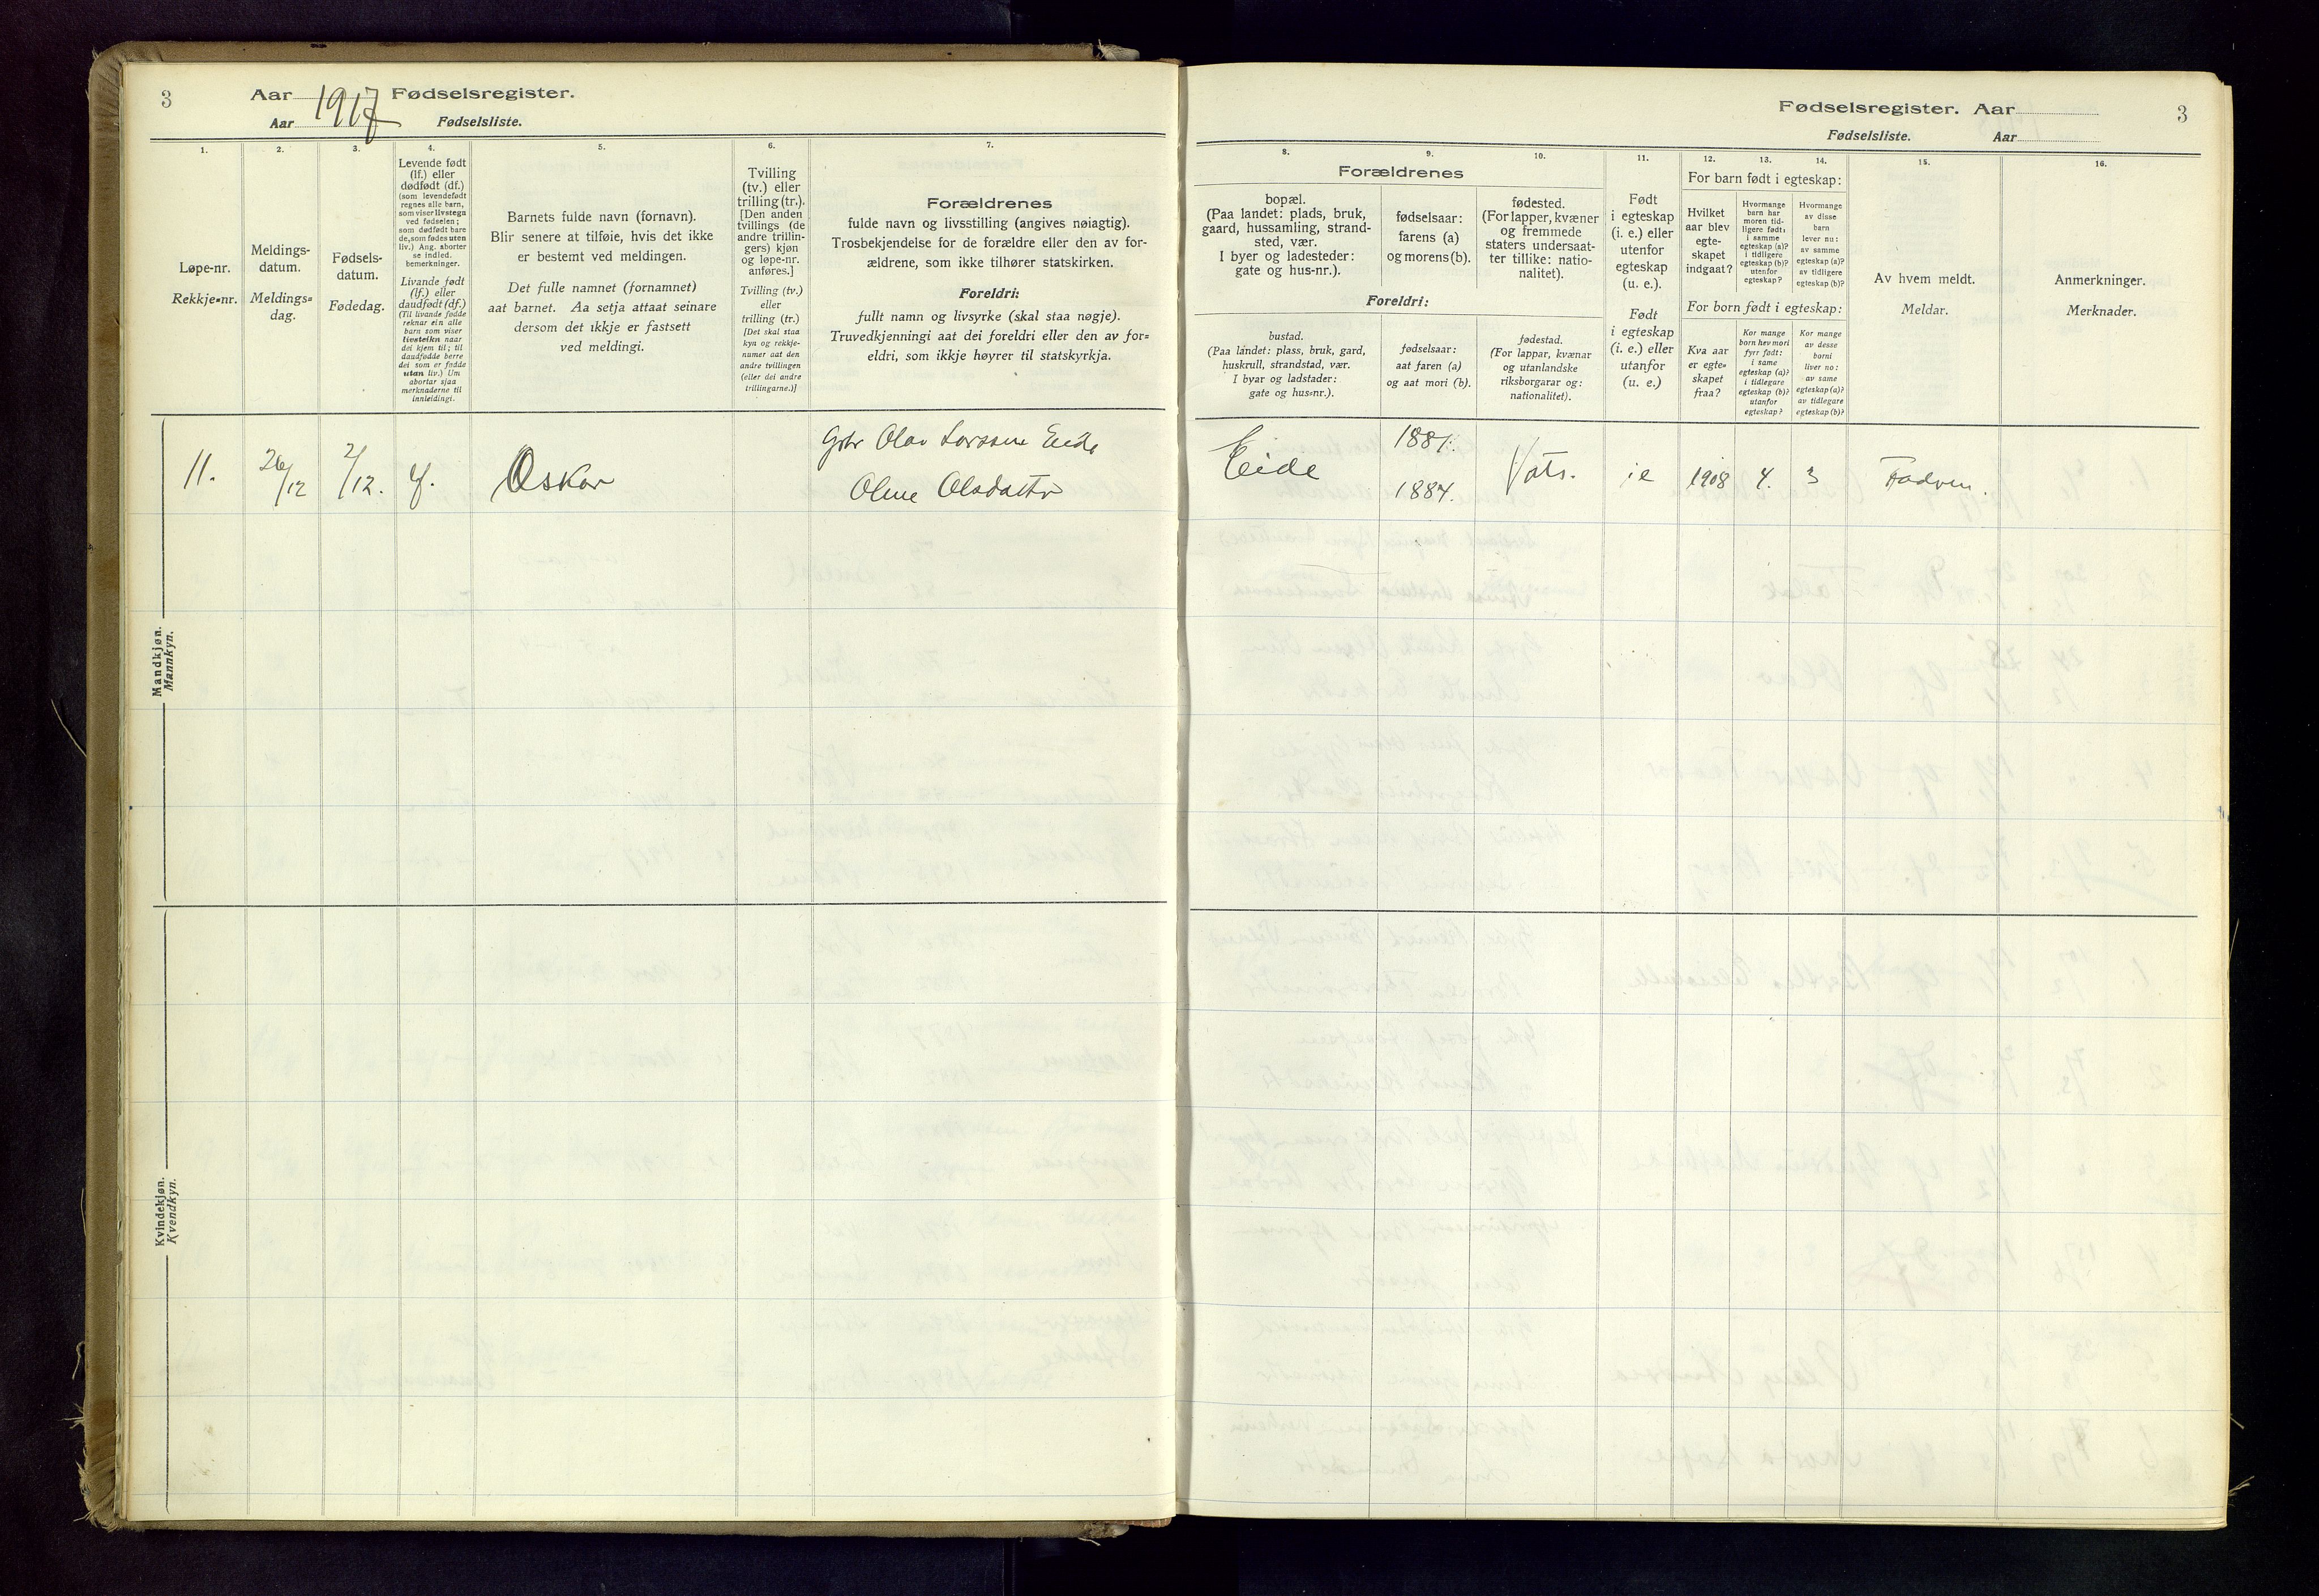 3
Aar 1917 Fødselsregister.
Aar Fødselsliste.
1.
Løpe-nr.
Rekkje=nr.
2.
Meldings-
datum.
Meldings=
dag.
3.
Fødsels-
datum.
Fødedag.
4.
Levende født
(lf.) eller
dødfødt (df.)
(som levendefødt
regnes alle barn,
som viser livstegn
ved fødselen;
som dødfødt bare
de, som fødes uten
liv.) Ang. aborter
se indled.
bemerkninger.
Livande født
(lf.) eller
daudfødt (df.)
(Til livande fødde
reknar ein alle
barn som viser
livsteikn naar
dei kjem til; til
daudfødde berre
dei som er fødde
utan liv.) Um
abortar sjaa
merknaderne til
innleidingi.
5.
Barnets fulde navn (fornavn).
Blir senere at tilføie, hvis det ikke
er bestemt ved meldingen.
Det fulle namnet (fornamnet)
aat barnet. Aa setja attaat seinare
dersom det ikkje er fastsett
ved meldingi.
6.
Tvilling
(tv.) eller
trilling (tr.).
[Den anden
tvillings (de
andre trillin-
gers) kjøn
og løpe-nr.
anføres.]
Tvilling (tv.)
eller
trilling (tr.)
[Det skal staa
kyn og rekkje-
numer aat den
andre tvillingen
(eller dei andre
trillingarne.)]
7.
Forældrenes
fulde navn og livsstilling (angives nøiagtig).
Trosbekjendelse for de forældre eller den av for-
ældrene, som ikke tilhører statskirken.
Foreldri:
fullt namn og livsyrke (skal staa nøgje).
Truvedkjenningi aat dei foreldri eller den av for=
eldri, som ikkje høyrer til statskyrkja.
Mandkjøn.
Mannkyn.
11. 26/12 2/12. lf. Oskar
Gbr Olav Larssen Eide
Oline Olsdatter
Kvindekjøn.
Kvendkyn.
Fødselsregister. Aar
3
Fødselsliste. Aar
8.
9.
10.
Forældrenes
bopæl.
(Paa landet: plads, bruk,
gaard, hussamling, strand-
sted, vær.
I byer og ladesteder:
gate og hus-nr.).
fødselsaar:
farens (a)
og morens (b).
fødested.
(For lapper, kvæner
og fremmede
staters undersaat-
ter tillike: natio-
nalitet).
Foreldri:
bustad.
(Paa landet: plass, bruk, gard,
huskrull, strandstad, vær.
I byar og ladstader:
gate og hus=nr.).
fødselsaar:
aat faren (a)
og aat mori (b).
fødestad.
(For lappar, kvænar
og utanlandske
riksborgarar og:
nationalitet).
11.
Født
i egteskap
(i. e.) eller
utenfor
egteskap
(u. e.).
Født
i egteskap
(i. e.) eller
utanfor
(u. e.)
12.
13.
14.
For barn født i egteskap:
Hvilket
aar blev
egte-
skapet
indgaat?
Hvormange
barn har
moren tid-
ligere født:
i samme
egteskap (a)?
i tidligere
egteskap (b)?
utenfor
egteskap?
Hvormange
av disse
barn
lever nu:
av samme
egteskap (a)?
av tidligere
egteskap (b)?
For born født i egteskap:
Kva aar
er egte-
skapet
fraa?
Kor mange
born hev mori
fyrr født:
i same
egteskap (a)?
i tidlegare
egteskap (b)?
utanfor
egteskap?
Kor mange
av desse
borni
liver no:
av same
egteskap (a)?
av tidlegare
egteskap (b)?
15.
Av hvem meldt.
Meldar.
16.
Anmerkninger.
Merknader.
Eide
1881.
1884.
Vats. ie 1908 4. 3 Fadren.